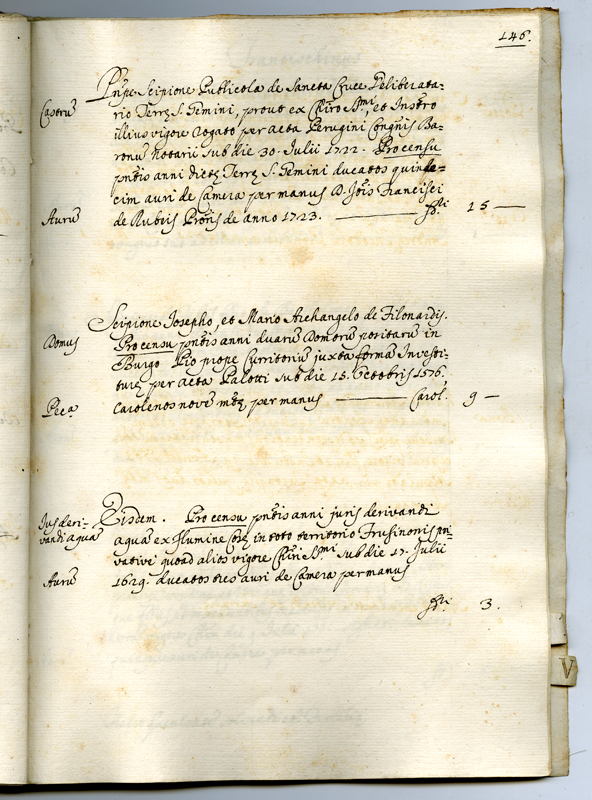 146.
Prñpe Scipione Publicola de Sancta Cruce Deliberata-
Castrū rio Terrȩ S. Gemini, prout ex Chiro SSmi, et Instro
illius vigore rogato per acta Perugini Congñis Ba-
ronū Notarii sub die 30. Julii 1722. Pro censu
pñtis anni dictȩ Terrȩ S. Gemini ducatos quinde-
cim auri de Camera per manus D. Jōis Francisci
Aurū de Rubeis Proris de anno 1723. 15 —
Scipione Josepho, et Mario Archangelo de Filonardis.
Domus Pro censu pñtis anni duarū Domorū positarū in
Burgo Pio prope Curritoriū juxta formā Investi-
turȩ per acta Palotti sub die 15. Octobris 1576.
Carolenos novē per manus — Carol. 9 —
Jus deri- Eisdem. Pro censu pñtis anni juris derivandi
vandi aquā aquā ex flumine in toto territorio Frusinonis pri-
vative quoad alios vigore Chiri SSmi sub die 17. Julii
Aurū 1629. ducatos tres auri de Camera per manus
3.
V